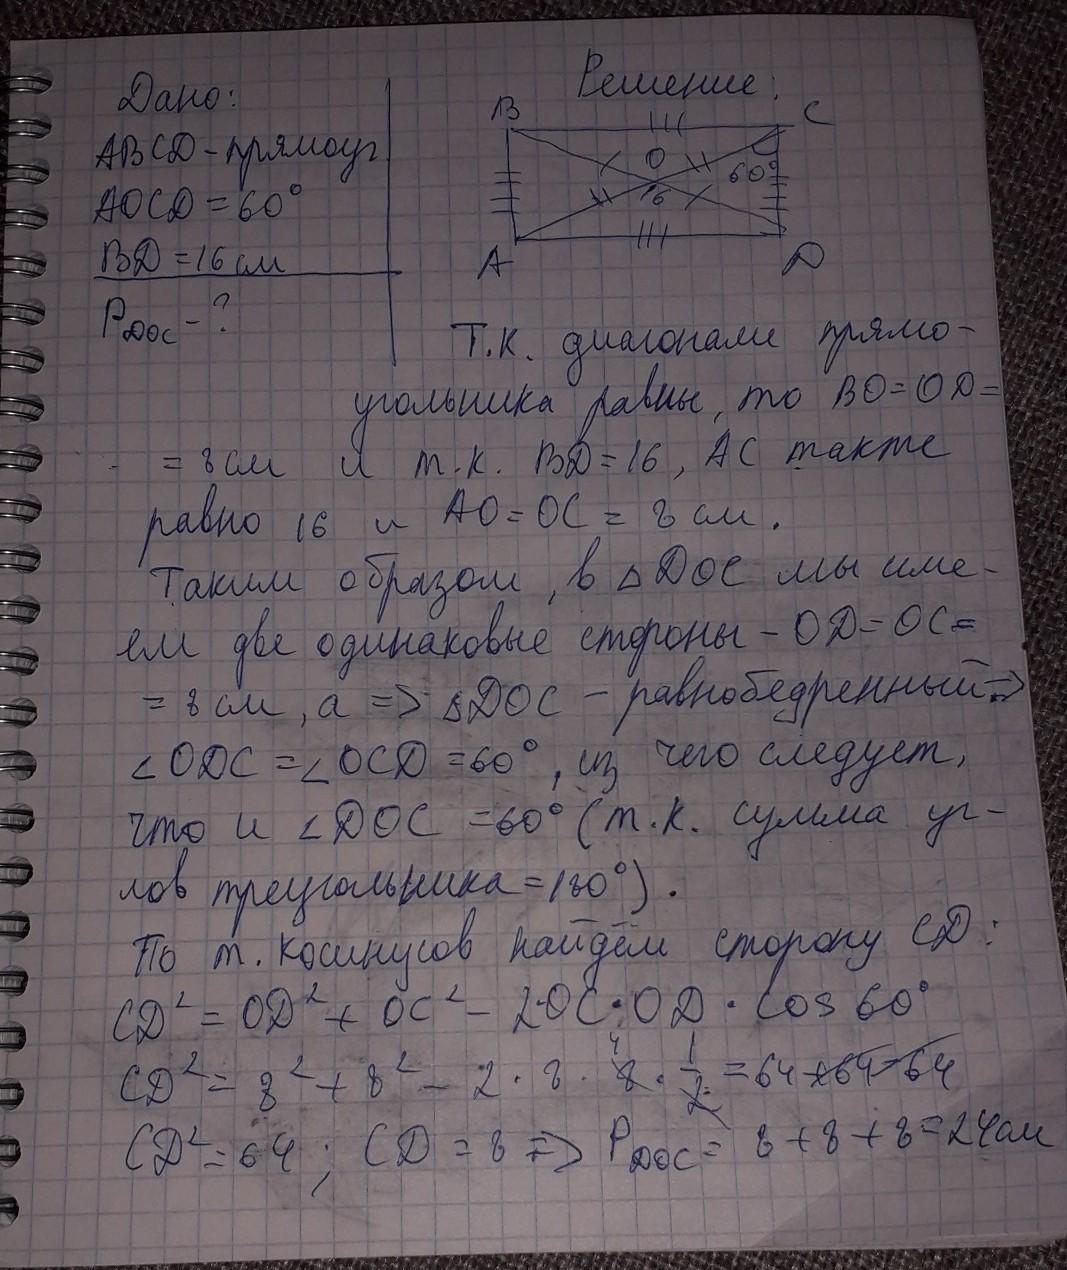 Дано:
ABCD-прямоуг
∠OCD=60°
BD=16 см
P DOC - ?
Решение:
B
C
O
60°
16
A
D
Т.к. диагонали прямо-
угольника равны, то BO=OD=
=8 см и т.к. BD=16, AC также
равно 16 и AO=OC=8 см.
Таким образом, в △DOC мы име-
ем две одинаковые стороны - OD=OC=
=8 см, а => △DOC - равнобедренный =>
∠ODC=∠OCD=60°, из чего следует,
что и ∠DOC=60° (т.к. сумма уг-
лов треугольника=180°).
По т. косинусов найдём сторону CD:
CD²=OD²+OC²-2·OC·OD·cos60°
CD²=8²+8²-2·8·8·1/2=64+64-64
CD²=64; CD=8 => P DOC=8+8+8=24см